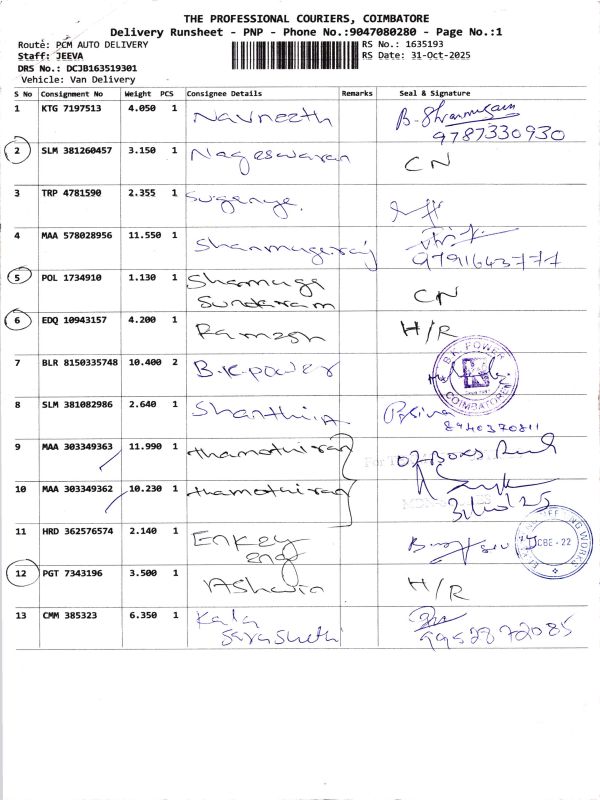 THE PROFESSIONAL COURIERS, COIMBATORE
Delivery Runsheet - PNP - Phone No.:9047080280 - Page No.:1
Route: PCM AUTO DELIVERY RS No.: 1635193
Staff: JEEVA RS Date: 31-Oct-2025
DRS No.: DCJB163519301
Vehicle: Van Delivery
S No Consignment No Weight PCS Consignee Details Remarks Seal & Signature
1 KTG 7197513 4.050 1 Navneeth B. Shanmugam
9787330930
2 SLM 381260457 3.150 1 Nageswaran CN
3 TRP 4781590 2.355 1
4 MAA 578028956 11.550 1 Shanmugaraj
9791643777
5 POL 1734910 1.130 1 Shamuga CN
Sundaram
6 EDQ 10943157 4.200 1 Ramesh H/R
7 BLR 8150335748 10.400 2 B.K.power B.K. POWER
COIMBATORE
8 SLM 381082986 2.640 1 Shanthi.A
8940370811
9 MAA 303349363 11.990 1 thamothiran 02 Boxs
10 MAA 303349362 10.230 1 thamothiran
11 HRD 362576574 2.140 1 Enkey
eng CBE-22
12 PGT 7343196 3.500 1 Ashwin H/R
13 CMM 385323 6.350 1 Kala
Saraswathi 9952872085